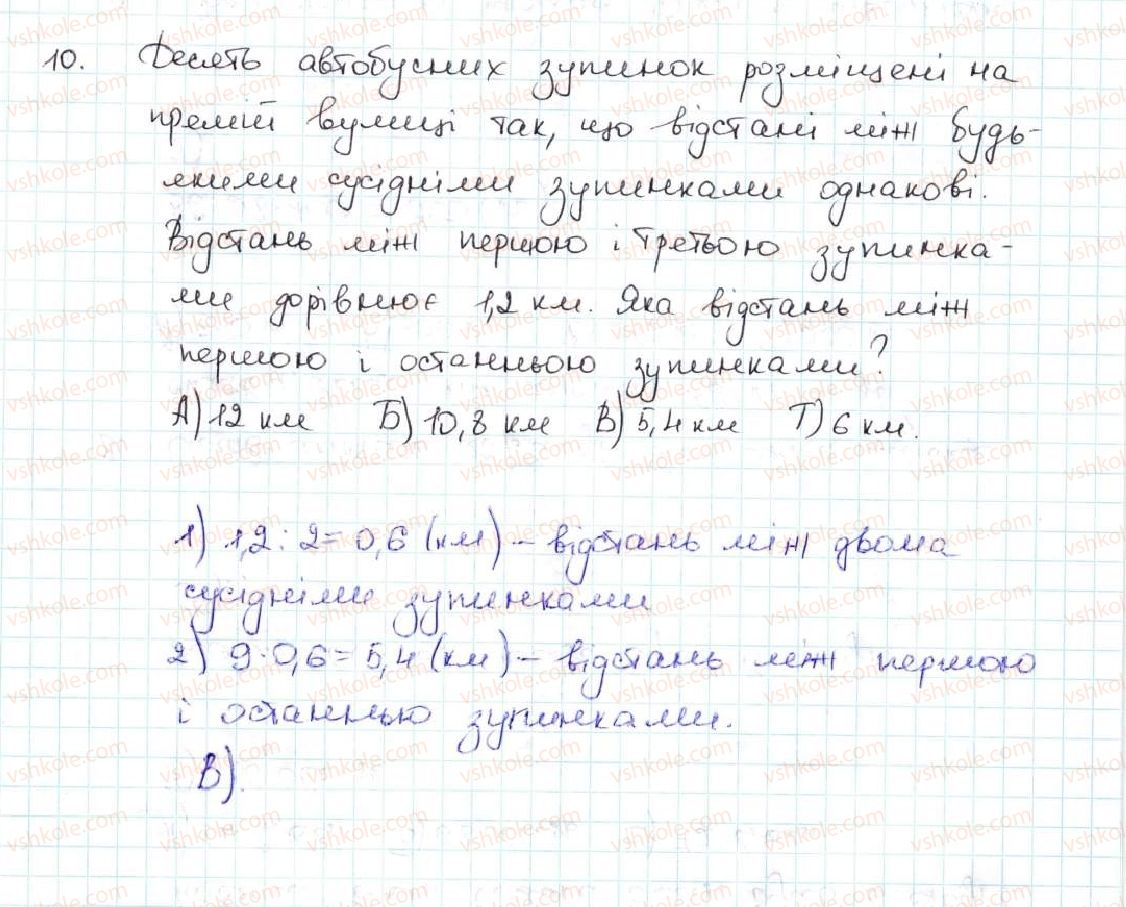 10. Десять автобусних зупинок розміщені на
прямій вулиці так, що відстані між будь-
якими сусідніми зупинками однакові.
Відстань між першою і третьою зупинка-
ми дорівнює 1,2 км. Яка відстань між
першою і останньою зупинками?
А) 12 км Б) 10,8 км В) 5,4 км Г) 6 км.
1) 1,2 : 2 = 0,6 (км) – відстань між двома
сусідніми зупинками
2) 9 · 0,6 = 5,4 (км) – відстань між першою
і останньою зупинками.
В).